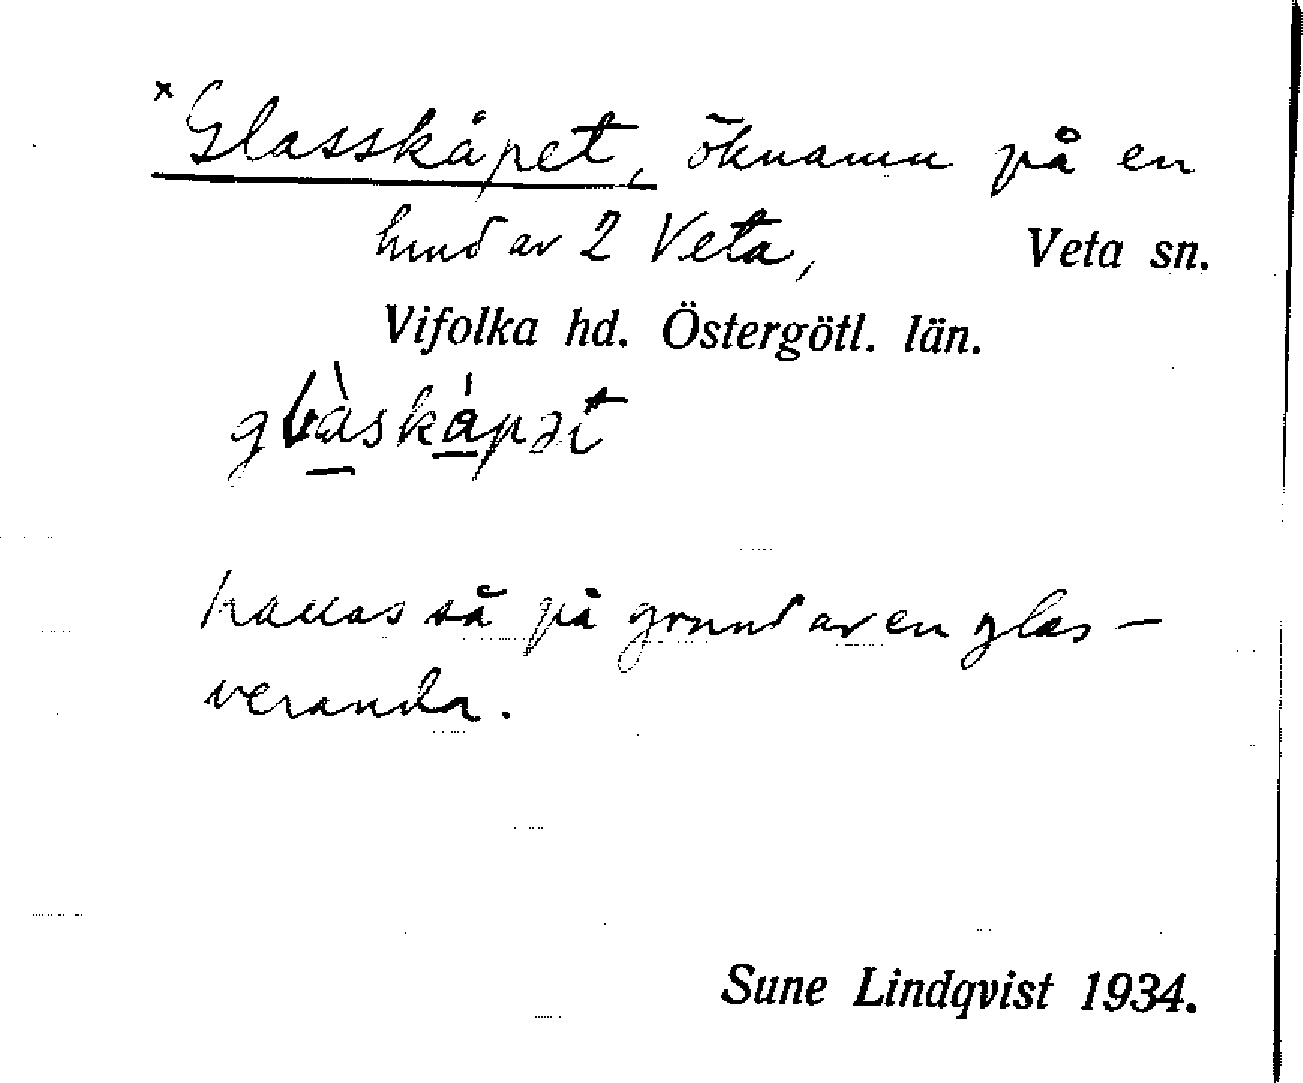 × Glasskåpet, öknamn på en
hus av 2 Veta, Veta sn.
Vifolka hd. Östergötl. län.
gɫàskápət
kallas så på grund av en glas-
veranda.
Sune Lindqvist 1934.